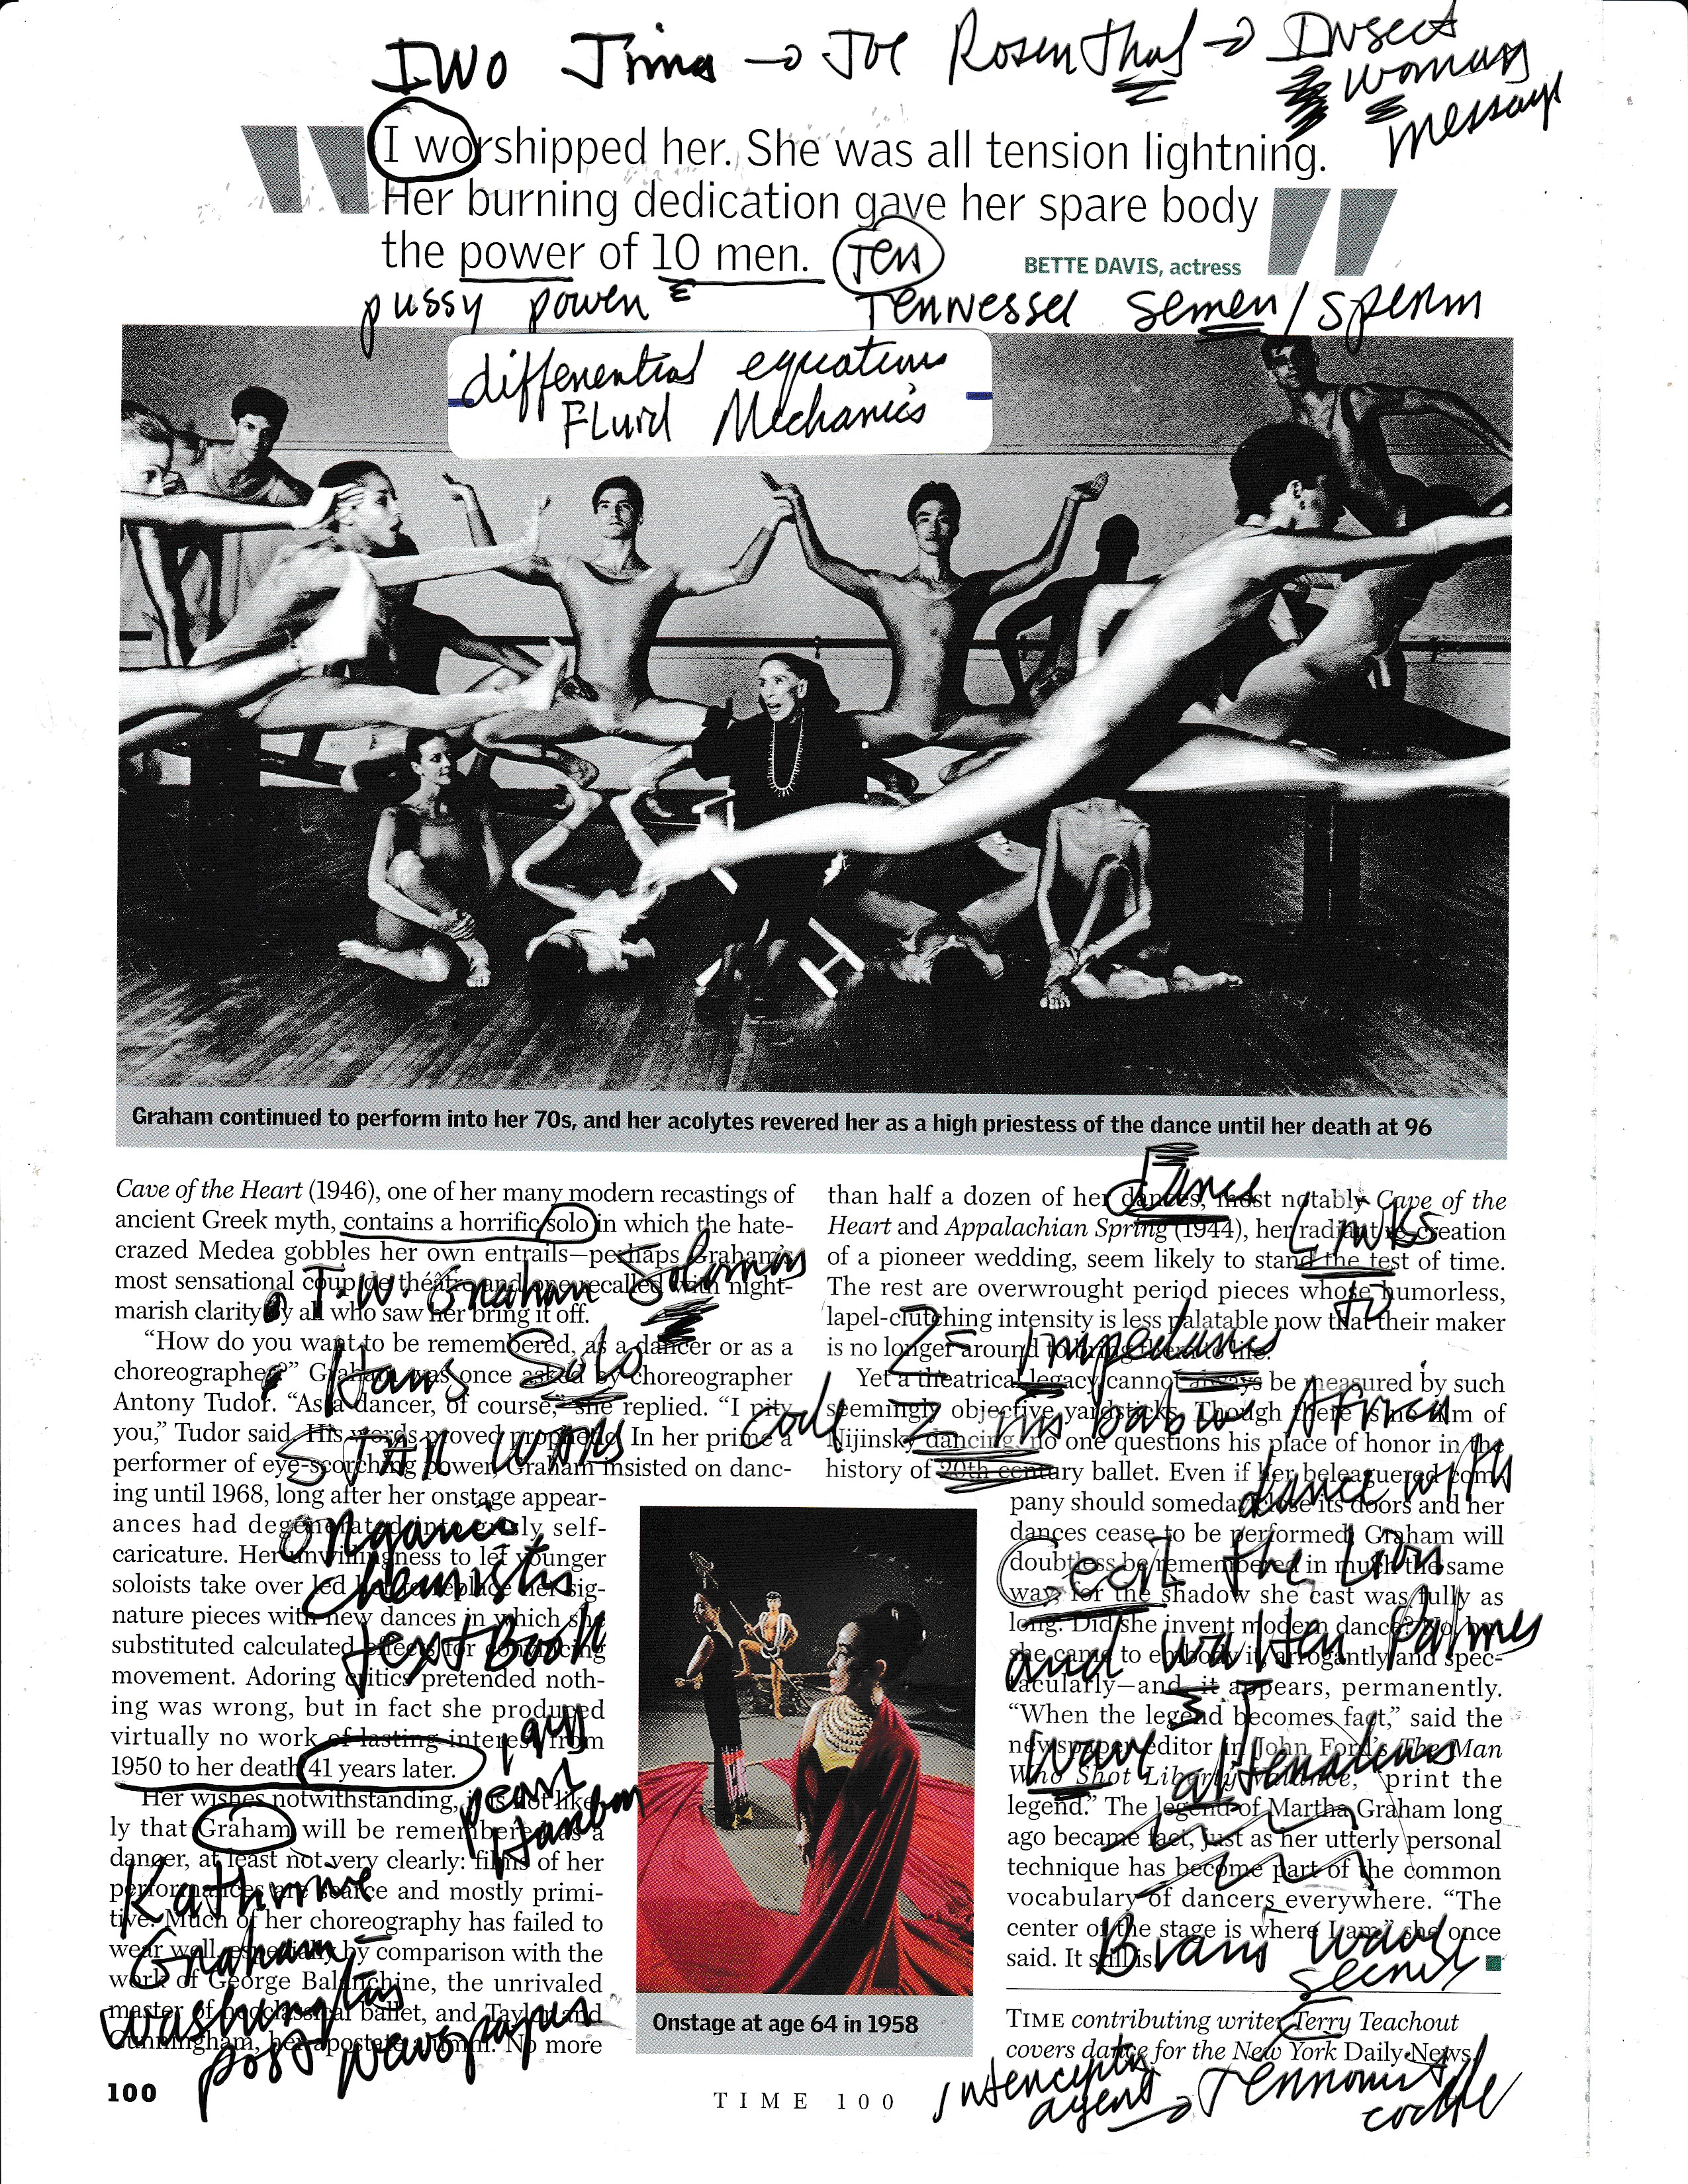 IWO Jima → JOE Rosenthal → Insect
woman
message
I worshipped her. She was all tension lightning.
Her burning dedication gave her spare body
the power of 10 men. Ten
BETTE DAVIS, actress
pussy power
Tennessee semen/sperm
differential equations
Fluid Mechanics
Graham continued to perform into her 70s, and her acolytes revered her as a high priestess of the dance until her death at 96
Cave of the Heart (1946), one of her many modern recastings of
ancient Greek myth, contains a horrific solo in which the hate-
crazed Medea gobbles her own entrails—perhaps Graham's
most sensational coup de théâtre and one recalled with night-
marish clarity by all who saw her bring it off.
"How do you want to be remembered, as a dancer or as a
choreographer?" Graham was once asked by choreographer
Antony Tudor. "As a dancer, of course," she replied. "I pity
you," Tudor said. His words proved prophetic. In her prime a
performer of eye-scorching power, Graham insisted on danc-
ing until 1968, long after her onstage appear-
ances had degenerated into grisly self-
caricature. Her unwillingness to let younger
soloists take over led her to replace her sig-
nature pieces with new dances in which she
substituted calculated effects for convincing
movement. Adoring critics pretended noth-
ing was wrong, but in fact she produced
virtually no work of lasting interest from
1950 to her death 41 years later.
Her wishes notwithstanding, it is not like-
ly that Graham will be remembered as a
dancer, at least not very clearly: films of her
performances are scarce and mostly primi-
tive. Much of her choreography has failed to
wear well, especially by comparison with the
work of George Balanchine, the unrivaled
master of neoclassical ballet, and Taylor and
Cunningham, her apostate alumni. No more
T.W. Graham Solomon
Hans Solo
STAR WARS
organic
chemistry
text Book
1941
pearl
Harbor
Kathrine
Graham
washington
post newspaper
than half a dozen of her dances, most notably Cave of the
Heart and Appalachian Spring (1944), her radiant re-creation
of a pioneer wedding, seem likely to stand the test of time.
The rest are overwrought period pieces whose humorless,
lapel-clutching intensity is less palatable now that their maker
is no longer around to bring them to life.
Yet a theatrical legacy cannot always be measured by such
seemingly objective yardsticks. Though there is no film of
Nijinsky dancing, no one questions his place of honor in the
history of 20th century ballet. Even if her beleaguered com-
pany should someday close its doors and her
dances cease to be performed, Graham will
doubtless be remembered in much the same
way, for the shadow she cast was fully as
long. Did she invent modern dance? No, but
she came to embody it, arrogantly and spec-
tacularly—and, it appears, permanently.
"When the legend becomes fact," said the
newspaper editor in John Ford's The Man
Who Shot Liberty Valance, "print the
legend." The legend of Martha Graham long
ago became fact, just as her utterly personal
technique has become part of the common
vocabulary of dancers everywhere. "The
center of the stage is where I am," she once
said. It still is.
dance
Links
to
Z = Impedance
code Zimbabwe Africa
dance with
Cecil the Lion
and walter Palmer
wave attenuations
Brain wave
secret
Onstage at age 64 in 1958
TIME contributing writer Terry Teachout
covers dance for the New York Daily News.
intercepting
agent →
100
TIME 100